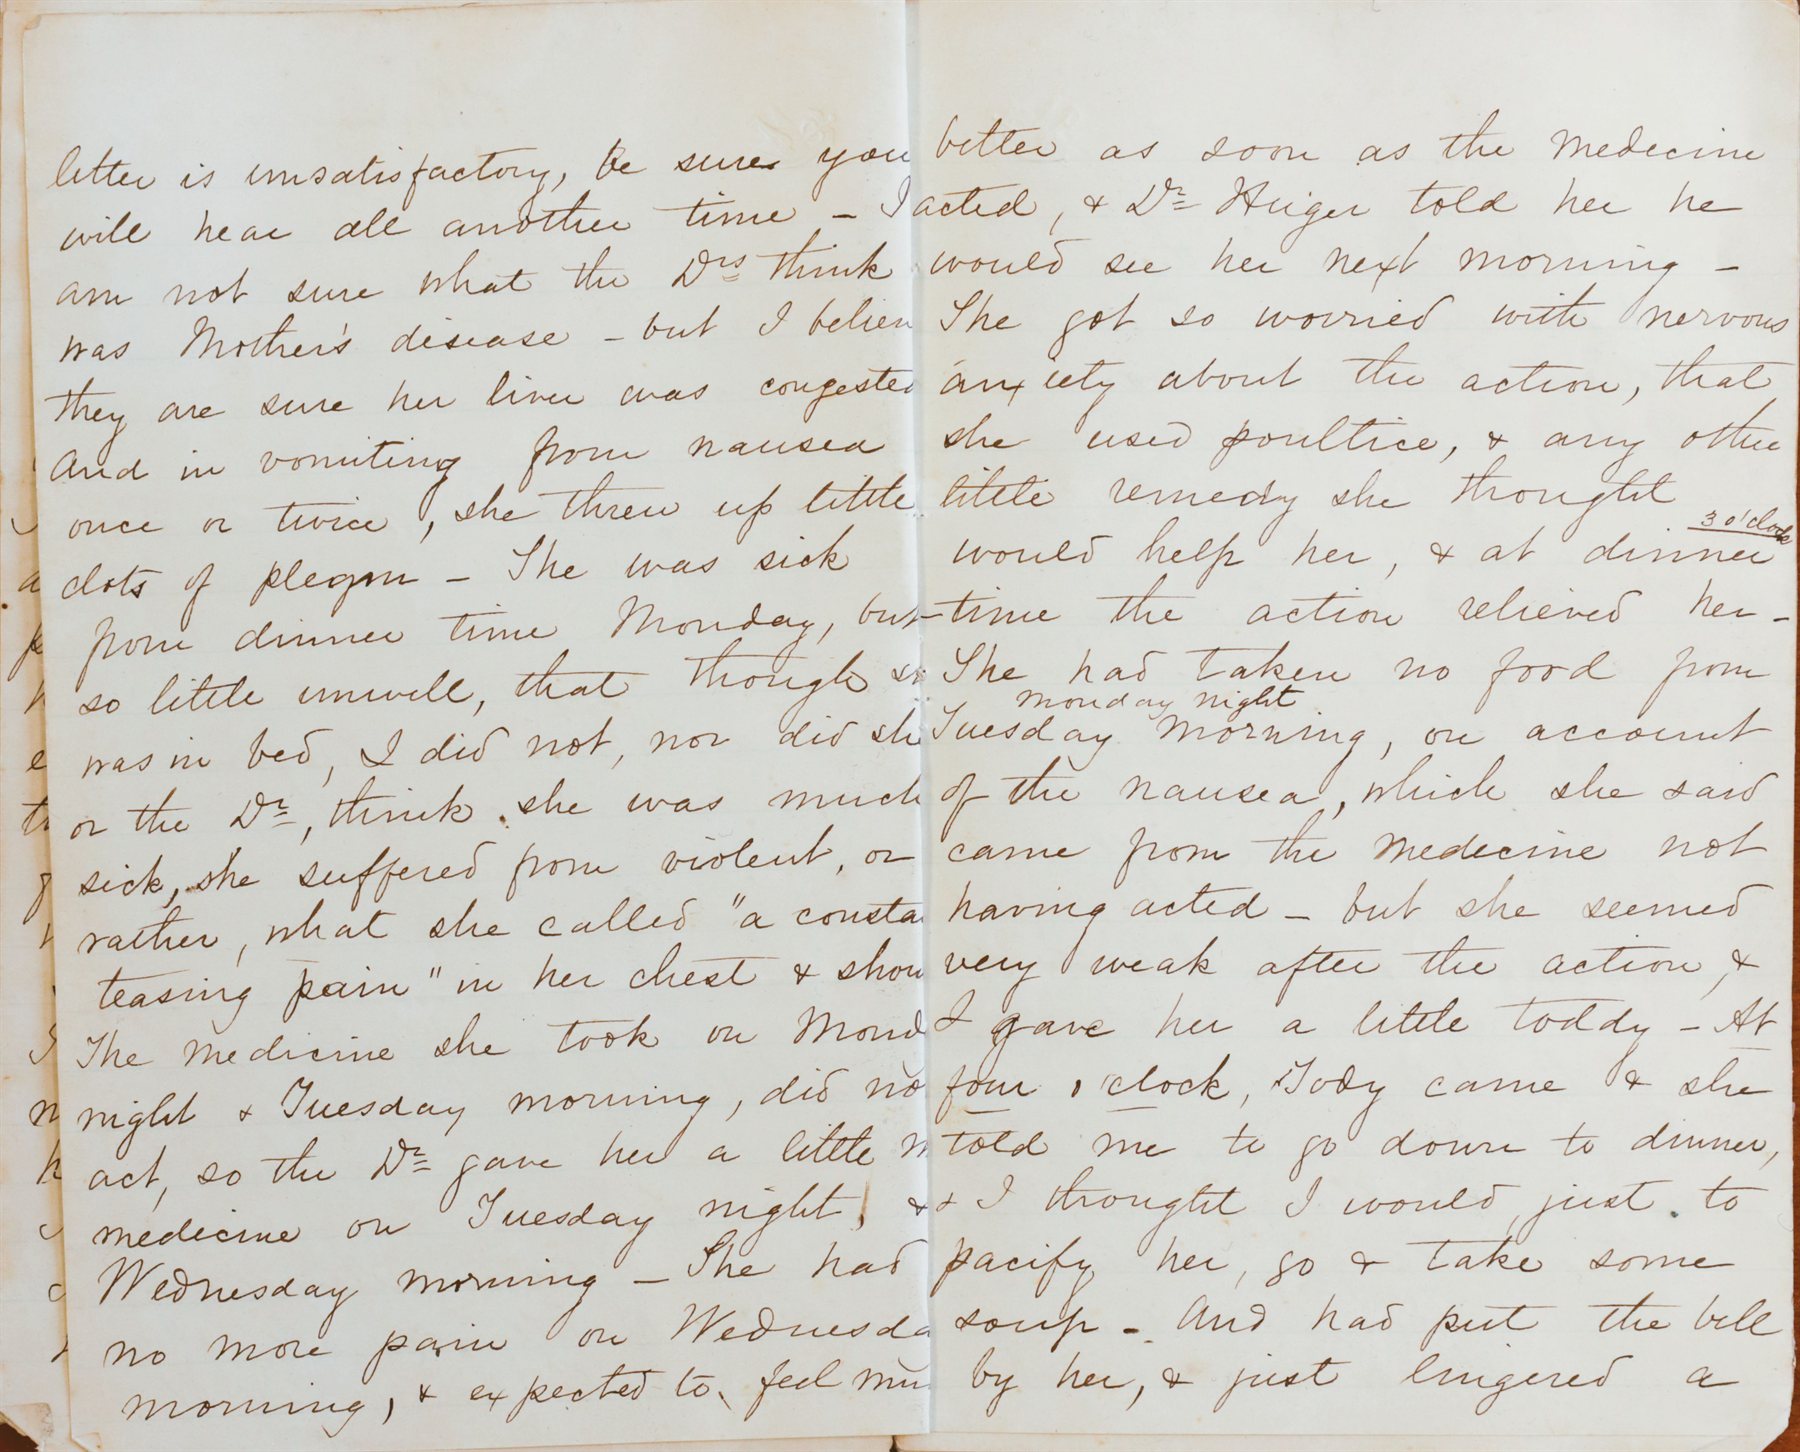 letter is unsatisfactory, be sure you
will hear all another time - I
am not sure what the Drs think
was Mother's disease - but I believ
they are sure her liver was congested
And in vomiting from nausea
once or twice, she threw up little
clots of plegm - She was sick
from dinner time Monday, but
so little unwell, that though
was in bed, I did not, nor did she
or the Dr, think she was much
sick, she suffered from violent, or
rather, what she called "a consta
teasing pain" in her chest & shou
The medicine she took on Mond
night & Tuesday morning, did no
act, so the Dr gave her a little m
medicine on Tuesday night, &
Wednesday morning - She had
no more pain on Wednesda
morning, & expected to feel mu
better as soon as the medicine
acted, & Dr Huger told her he
would see her next morning -
She got so worried with nervous
anxiety about the action, that
she used poultice, & any other
little remedy she thought
3 o'clock
would help her, & at dinner
time the action relieved her -
She had taken no food from
Monday night
Tuesday morning, on account
of the nausea, which she said
came from the medicine not
having acted - but she seemed
very weak after the action, &
I gave her a little toddy - At
four o'clock, Tody came & she
told me to go down to dinner,
& I thought I would, just to
pacify her, go & take some
soup - And had put the bell
by her, & just lingered a